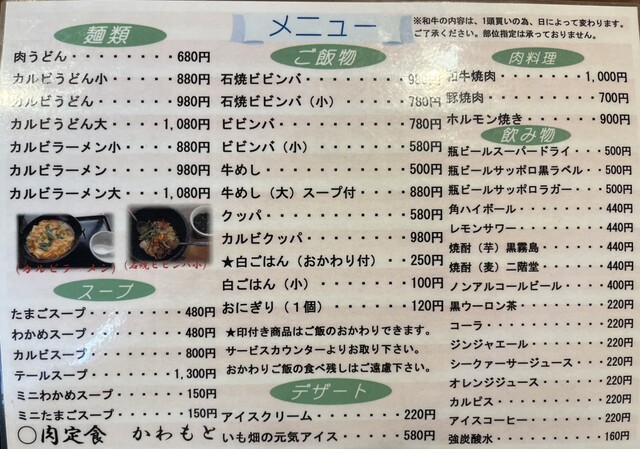 メニュー
※和牛の内容は、1頭買いの為、日によって変わります。
ご了承ください。部位指定は承っておりません。
麺類
肉うどん・・・・・・・680円
カルビうどん小・・・・880円
カルビうどん・・・・・980円
カルビうどん大・・・1,080円
カルビラーメン小・・・880円
カルビラーメン・・・・980円
カルビラーメン大・・1,080円
(カルビラーメン)
(石焼ビビンバ小)
スープ
たまごスープ・・・・・・・480円
わかめスープ・・・・・・・480円
カルビスープ・・・・・・・800円
テールスープ・・・・・・1,300円
ミニわかめスープ・・・・150円
ミニたまごスープ・・・・150円
〇肉定食 かわもと
ご飯物
石焼ビビンバ・・・・・・・980円
石焼ビビンバ(小)・・・・780円
ビビンバ・・・・・・・・・780円
ビビンバ(小)・・・・・・580円
牛めし・・・・・・・・・・580円
牛めし(大)スープ付・・・880円
クッパ・・・・・・・・・・580円
カルビクッパ・・・・・・・980円
★白ごはん(おかわり付)・・250円
白ごはん(小)・・・・・・100円
おにぎり(1個)・・・・・120円
★印付き商品はご飯のおかわりできます。
サービスカウンターよりお取り下さい。
おかわりご飯の食べ残しはご遠慮下さい。
デザート
アイスクリーム・・・・・・220円
いも畑の元気アイス・・・・580円
肉料理
和牛焼肉・・・・・・1,000円
豚焼肉・・・・・・・・700円
ホルモン焼き・・・・・900円
飲み物
瓶ビールスーパードライ・・・500円
瓶ビールサッポロ黒ラベル・・500円
瓶ビールサッポロラガー・・・500円
角ハイボール・・・・・・・440円
レモンサワー・・・・・・・440円
焼酎(芋)黒霧島・・・・・440円
焼酎(麦)二階堂・・・・・440円
ノンアルコールビール・・・400円
黒ウーロン茶・・・・・・・220円
コーラ・・・・・・・・・・220円
ジンジャエール・・・・・・220円
シークァーサージュース・・220円
オレンジジュース・・・・・220円
カルピス・・・・・・・・・220円
アイスコーヒー・・・・・・220円
強炭酸水・・・・・・・・・160円